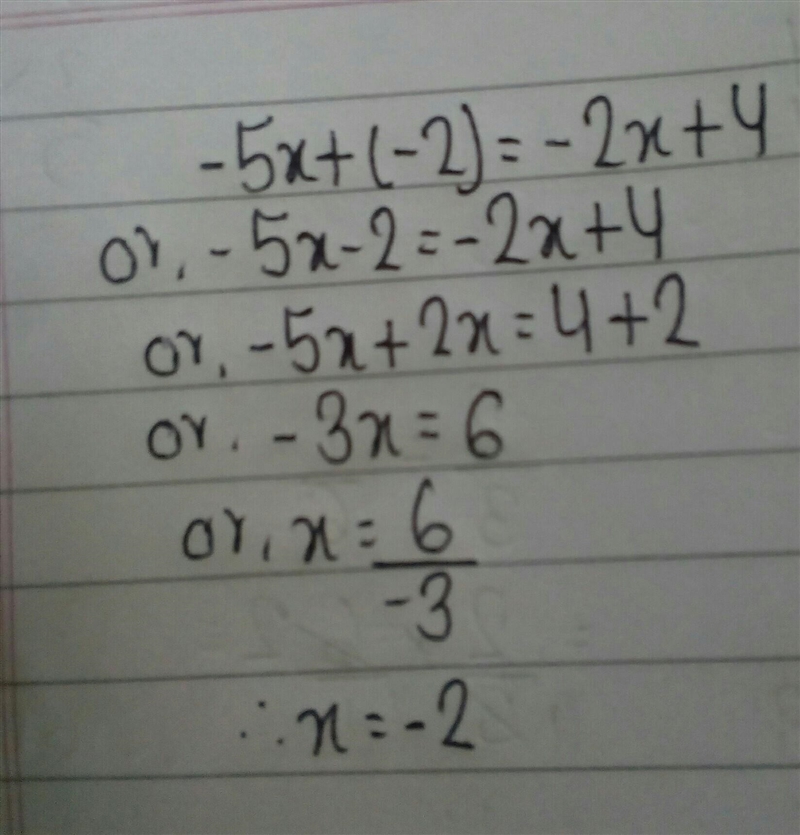 -5x+(-2)=-2x+4
or, -5x-2=-2x+4
or, -5x+2x=4+2
or. -3x=6
or, x=6/-3
∴x=-2